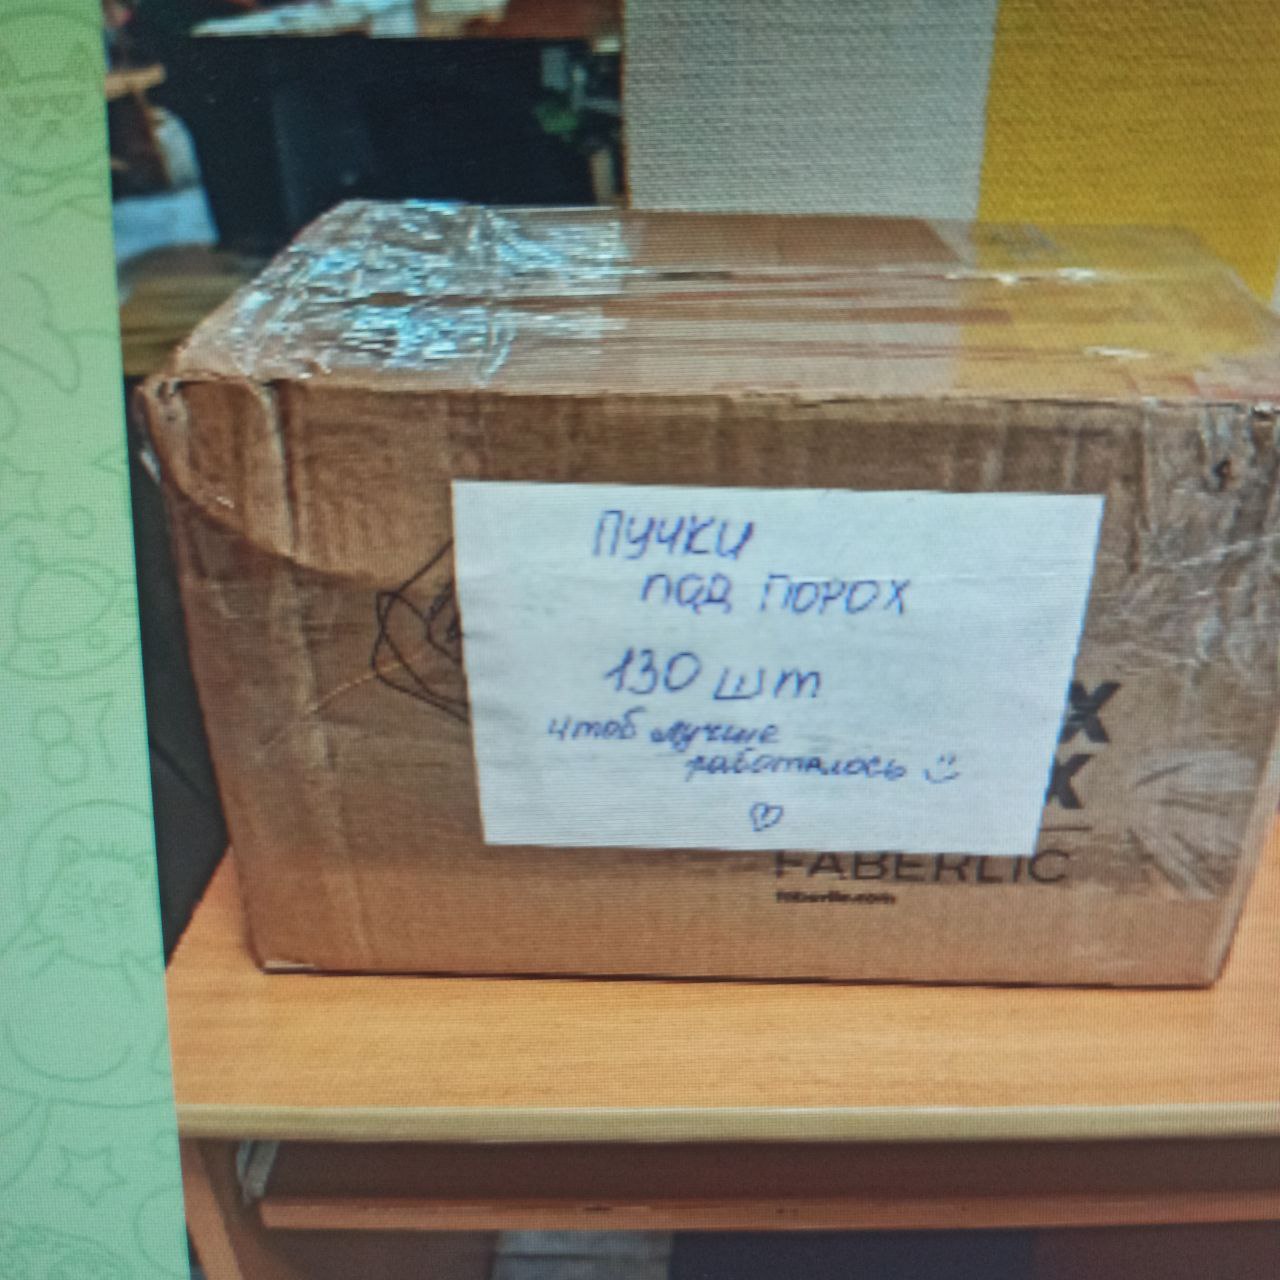 ПУЧКИ
ПОД ПОРОХ
130 шт
чтоб лучше
работалось
X
X
FABERLIC
faberlic.com